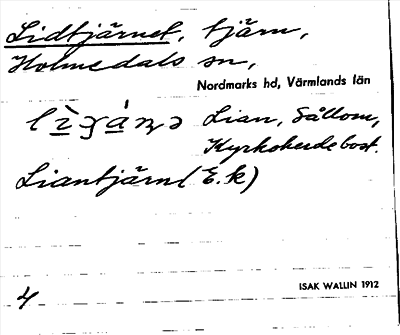 Lidtjärnet, tjärn,
Holmedals sn,
Nordmarks hd, Värmlands län
Lian, Sållom,
Kyrkoherdebost.
Liantjärn (E.k)
4
ISAK WALLIN 1912